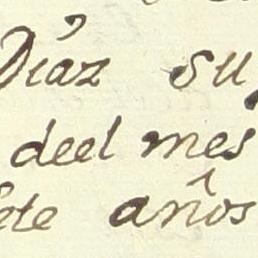 Díaz su
deel mes
ete años